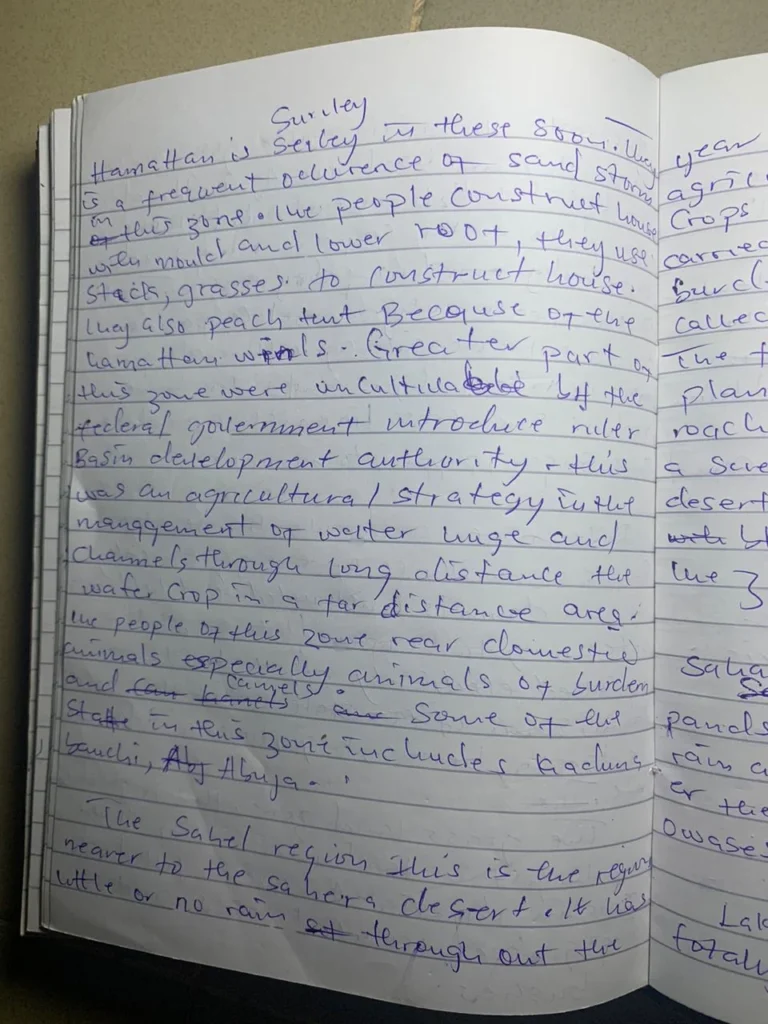 Suruley
Hamattan is Serley in these Soon. they
is a frequent occurence of sand storm
in this zone. the people construct house
with mould and lower root, they use
Stack, grasses. to construct house.
they also peach tent Because of the
hamattan winds. Greater part of
this zone were uncultivable by the
federal government introduce river
Basin development authority. this
was an agricultural strategy in the
management of water huge and
Channels through long distance the
water crop in a far distance area.
the people of this zone rear domestic
animals especially animals of burden
and camels. Some of the
State in this zone includes kaduna
bauchi, Abuja.
The Sahel region this is the region
nearer to the sahera desert. It has
little or no rain through out the
year
agric
Crops
carried
Burcl
Callec
The f
plan
roach
a Seve
desert
The 3
Saha
pands
rain a
er the
Owases
Lak
totall